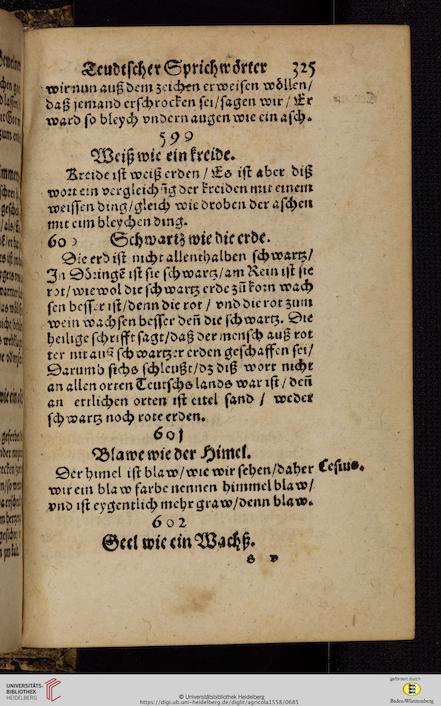 Teudtscher Sprichwörter 325
wir nun auß dem zeichen erweisen wöllen/
daß jemand erschrocken sei/sagen wir/ Er
ward so bleych vndern augen wie ein asch.
599
Weiß wie ein kreide.
Kreide ist weiß erden/ Es ist aber diß
wort ein vergleichũg der kreiden mit einem
weissen ding/gleich wie droben der aschen
mit eim bleychen ding.
600 Schwartz wie die erde.
Die erd ist nicht allenthalben schwartz/
Jn Döringẽ ist sie schwartz/am Rein ist sie
rot/wiewol die schwartz erde zũ korn wach
sen besser ist/denn die rot / vnd die rot zum
wein wachsen besser deñ die schwartz. Die
heilige schrifft sagt/daß der mensch auß rot
ter nit auß schwartzer erden geschaffen sei/
Darumb sichs schleußt/dz diß wort nicht
an allen orten Teutschs lands war ist/ deñ
an ettlichen orten ist eitel sand / weder
schwartz noch rote erden.
601
Blawe wie der Himel.
Der himel ist blaw/wie wir sehen/daher Cesius.
wir ein blaw farbe nennen himmelblaw/
vnd ist eygentlich mehr graw/denn blaw.
602
Geel wie ein Wachß.
UNIVERSITÄTS-
BIBLIOTHEK
HEIDELBERG
© Universitätsbibliothek Heidelberg
https://digi.ub.uni-heidelberg.de/diglit/agricola1558/0685
gefördert durch
Baden-Württemberg